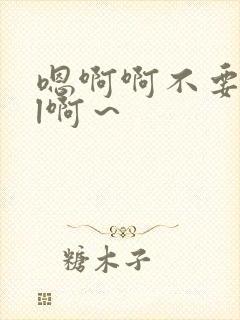 嗯啊啊不要
l啊~
糖木子